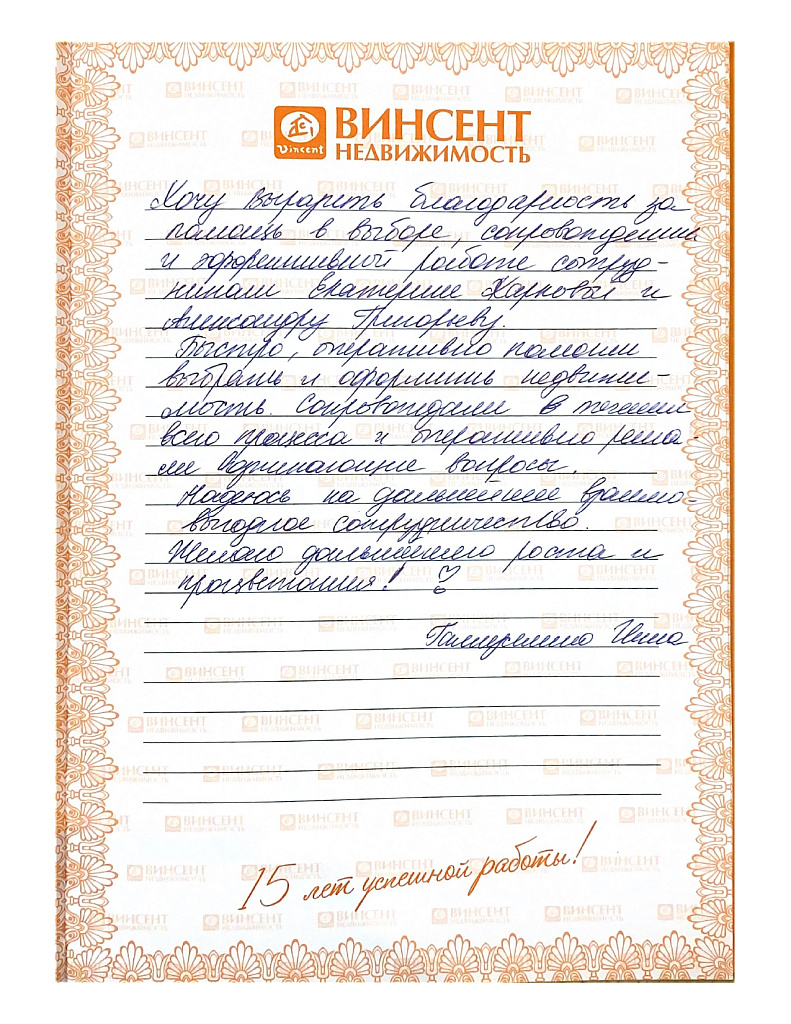 ВИНСЕНТ
НЕДВИЖИМОСТЬ
Vincent
Хочу выразить благодарность за
помощь в выборе, сопровождении
и эффективной работе сотруд-
никам Екатерине Харковой и
Александру Григорьеву.
Быстро, оперативно помогли
выбрать и оформить недвижи-
мость. Сопровождали в течении
всего процесса и оперативно реша-
ли возникающие вопросы.
Надеюсь на дальнейшее взаимо-
выгодное сотрудничество.
Желаю дальнейшего роста и
процветания!
Инна
15 лет успешной работы!